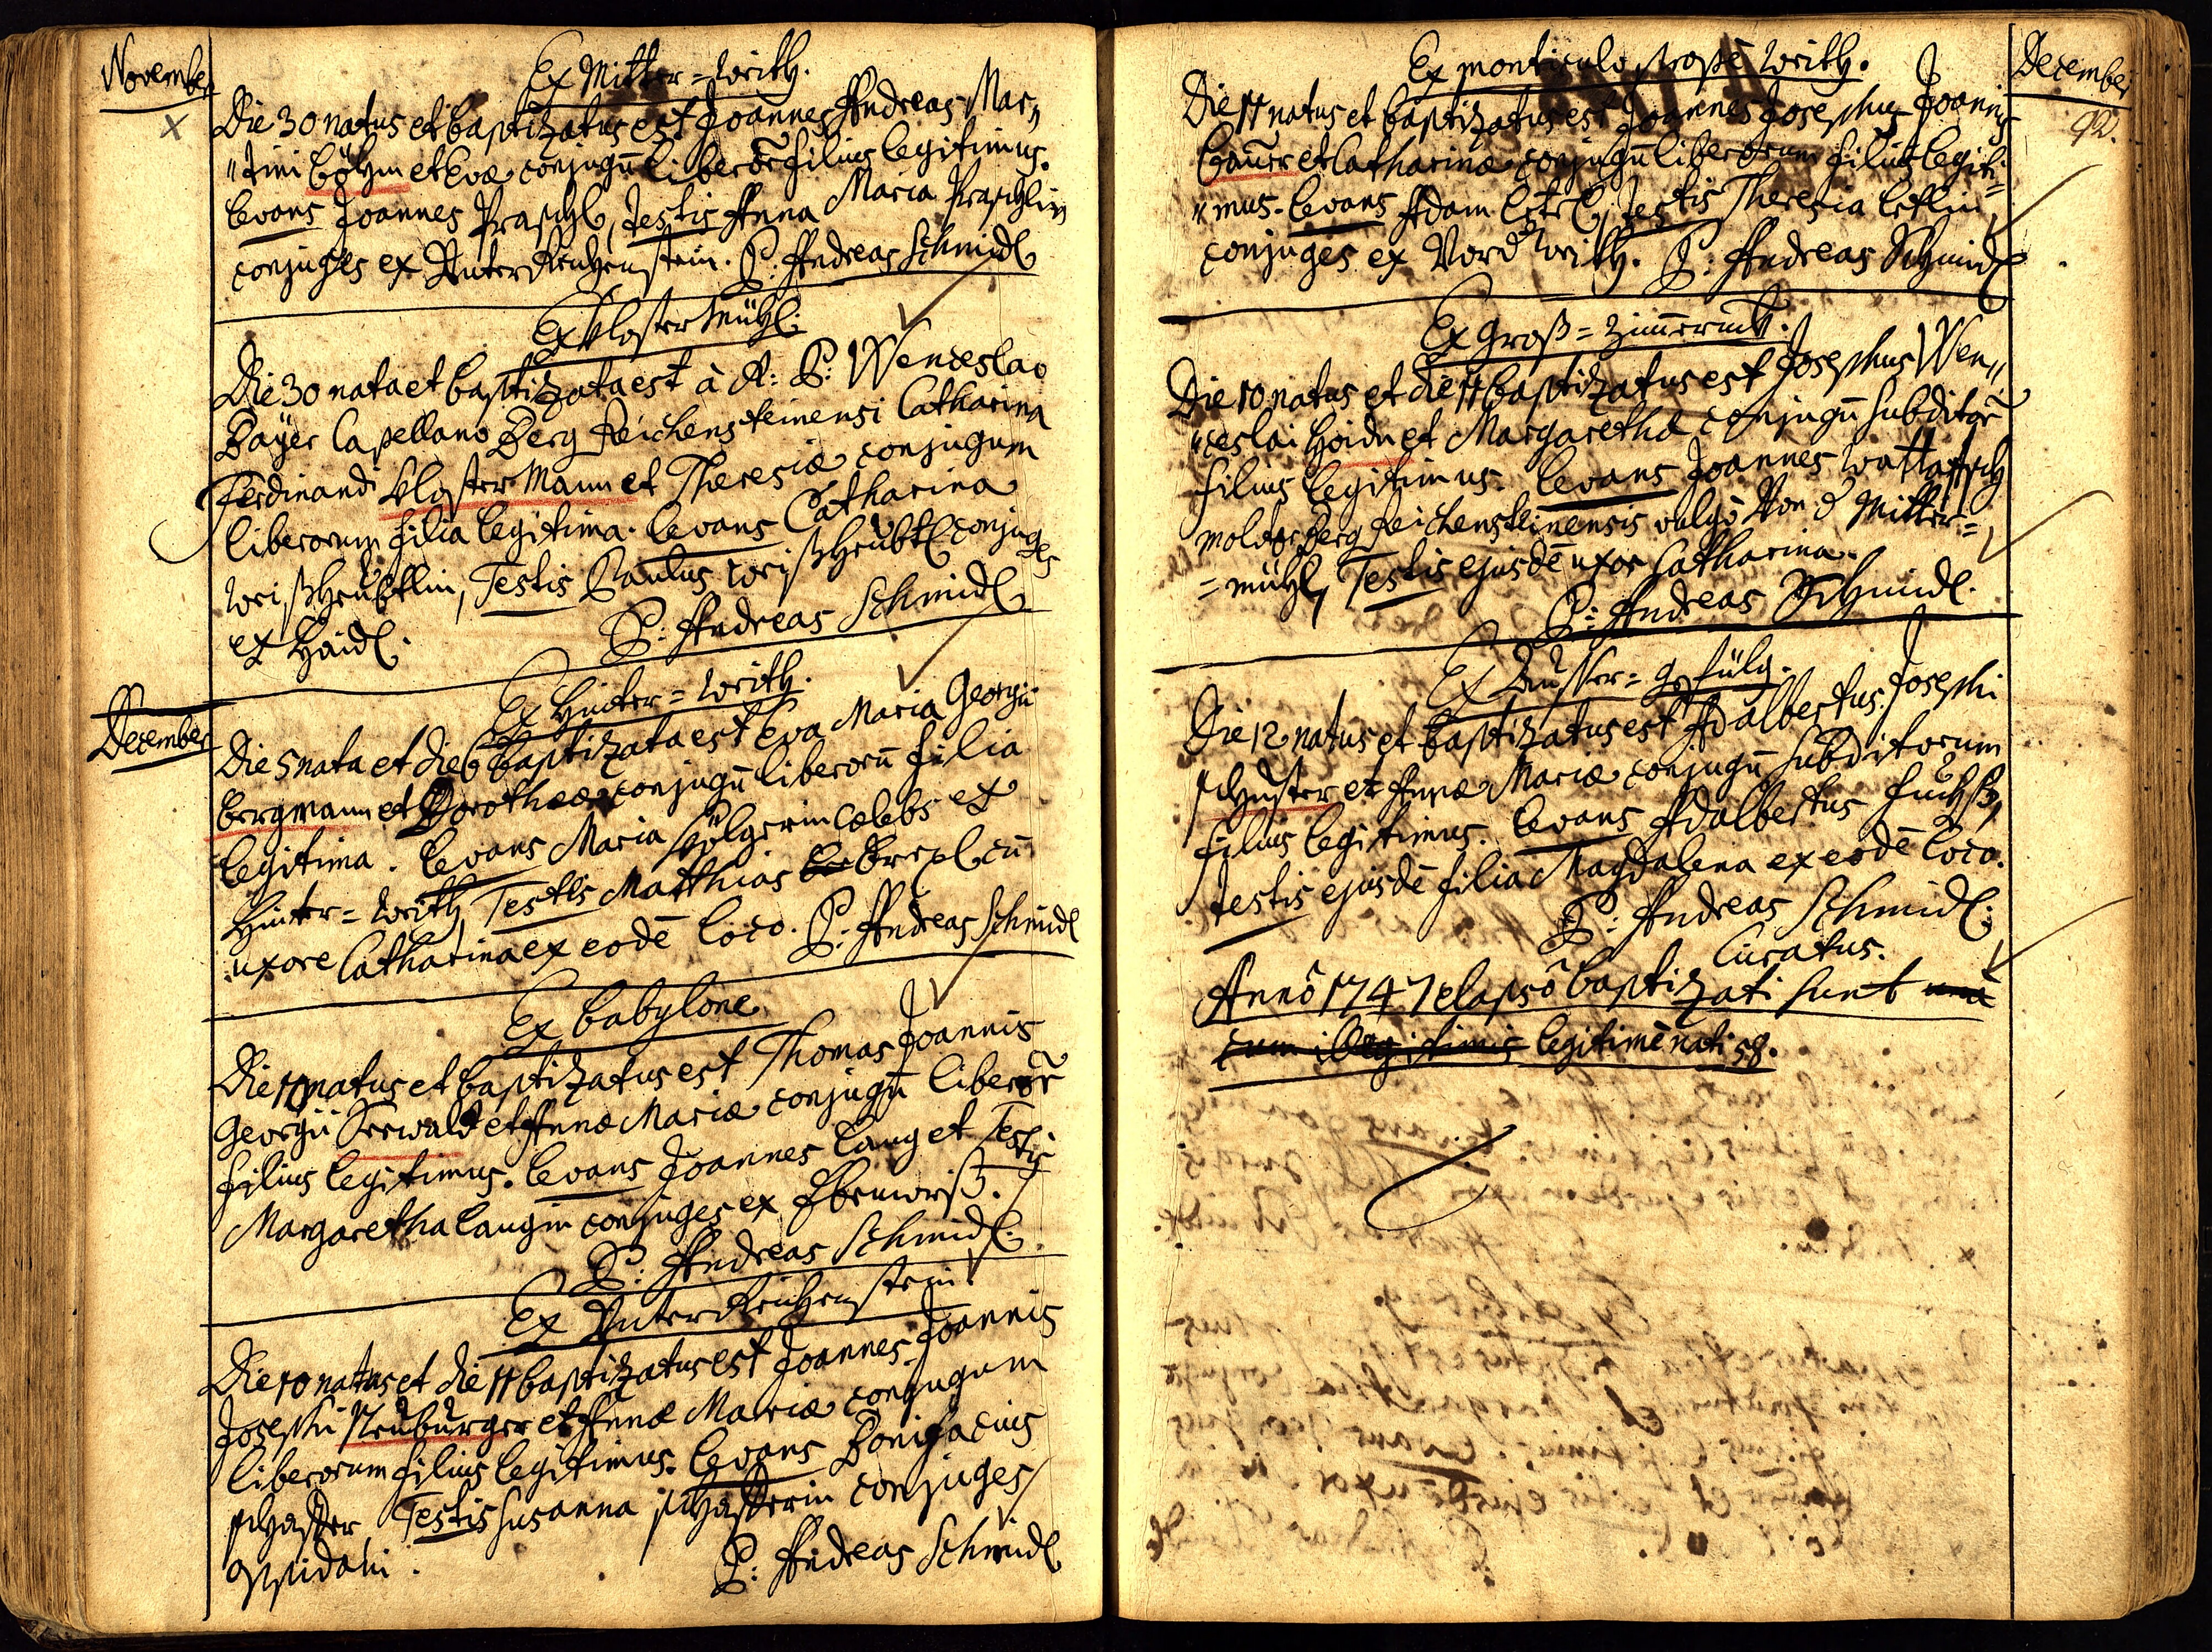 November
Ex Mitter=worith.
Die 30 natus et baptizatus est Joannes Andreas Mar„
„tini Böhm et Evæ conjugū liberor̄ filius legitimus.
Levans Joannes Praschl, Testis Anna Maria Praschlin
conjuges ex Unter Reichenstein. P: Andreas Schmidl
Ex Kloster Mühl.
Die 30 nata et baptizata est à R: P: Wenceslao
Bayer Capellano Berg Reichensteinensi Catharina
Ferdinandi Kloster Mann et Theresiæ conjugum
liberorum filia legitima. Levans Catharina
Testis Paulus conjuges
ex Haidl. P: Andreas Schmidl
December
Ex Hinter=worith.
Die 5 nata et die 6 baptizata est Eva Maria Georgii
Bergmann et Dorotheæ conjugū liberorū filia
legitima. Levans Maria cælebs ex
Hinter=worith, Testis Matthias cū
uxore Catharina ex eodē loco. P: Andreas Schmidl
Ex Babylone
Die 11 natus et baptizatus est Thomas Joannis
Georgii Seewald et Annæ Mariæ conjugū liberor̄
filius legitimus. Levans Joannes Lang et Testis
Margaretha Langin conjuges ex
P: Andreas Schmidl.
Ex Unter Reichenstein.
Die 10 natus et die 11 baptizatus est Joannes Joannis
Josephi Neuburger et Annæ Mariæ conjugum
liberorum filius legitimus. Levans Bonifacius
Schaffer, Testis Susanna Schafferin conjuges
oppidani. P: Andreas Schmidl
December
92.
Ex monticulo prope worith.
Die 11 natus et baptizatus est Joannes Josephus Joannis
Bauer et Catharinæ conjugū liberorum filius legiti=
„mus. Levans Adam Ertl, Testis Theresia Ertlin
conjuges ex Vord worith. P: Andreas Schmidl
Ex Groß=Zimmern
Die 10 natus et die 11 baptizatus est Josephus Wen„
„ceslai Hoidn et Margarethæ conjugū subditor̄
filius legitimus. Levans Joannes
molitor Berg Reichensteinensis vulgò Von d Mitter=
=mühl, Testis ejusdē uxor Catharina.
P: Andreas Schmidl.
Ex Ausser=gefülg.
Die 12 natus et baptizatus est Adalbertus Josephi
Schuster et Annæ Mariæ conjugū subditorum
filius legitimus. Levans Adalbertus Fuchß,
Testis ejusdē filia Magdalena ex eodē loco.
P: Andreas Schmidl.
Curatus.
Annô 1747 elapsô baptizati sunt unà
cum illegitimis legitimè nati 58.